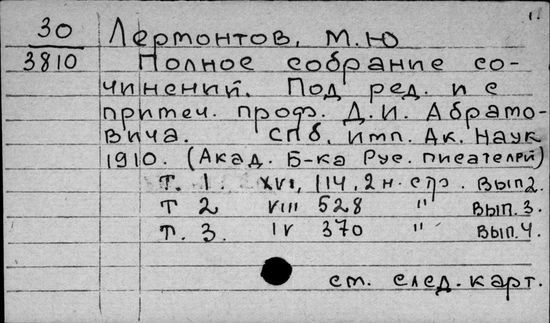 30 Лермонтов, М.Ю
3810 Полное собрание со-
чинений. Под ред. и с
примеч. проф. Д.И. Абрамо-
вича. СПб, Имп. Ак. Наук
1910. (Акад. Б-ка Рус. писателей)
Т. 1. XVI, 114, 2 н. стр. Вып 2.
Т 2 VIII 528 " Вып. 3.
Т. 3. IV 370 " Вып. 4.
см. след. карт.